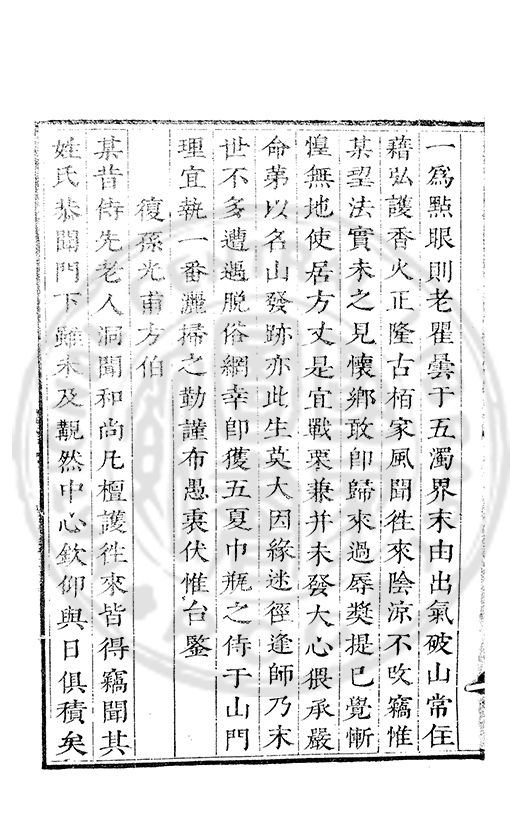 一為點眼則老瞿曇于五濁界末由出氣破山常住
藉弘護香火正隆古栢家風聞徃來陰涼不改竊惟
某望法實未之見懷鄉敢即歸來過辱獎提已覺慚
惶無地使居方丈是宜戰栗兼并未發大心猥承嚴
命第以名山發跡亦此生莫大因緣迷徑逢師乃末
世不多遭遇脫俗網幸即獲五夏巾瓶之侍于山門
理宜執一番灑掃之勤謹布愚衷伏惟台鑒
復孫光甫方伯
某昔侍先老人洞聞和尚凡檀護徃來皆得竊聞其
姓氏恭聞門下雖未及覯然中心欽仰與日俱積矣